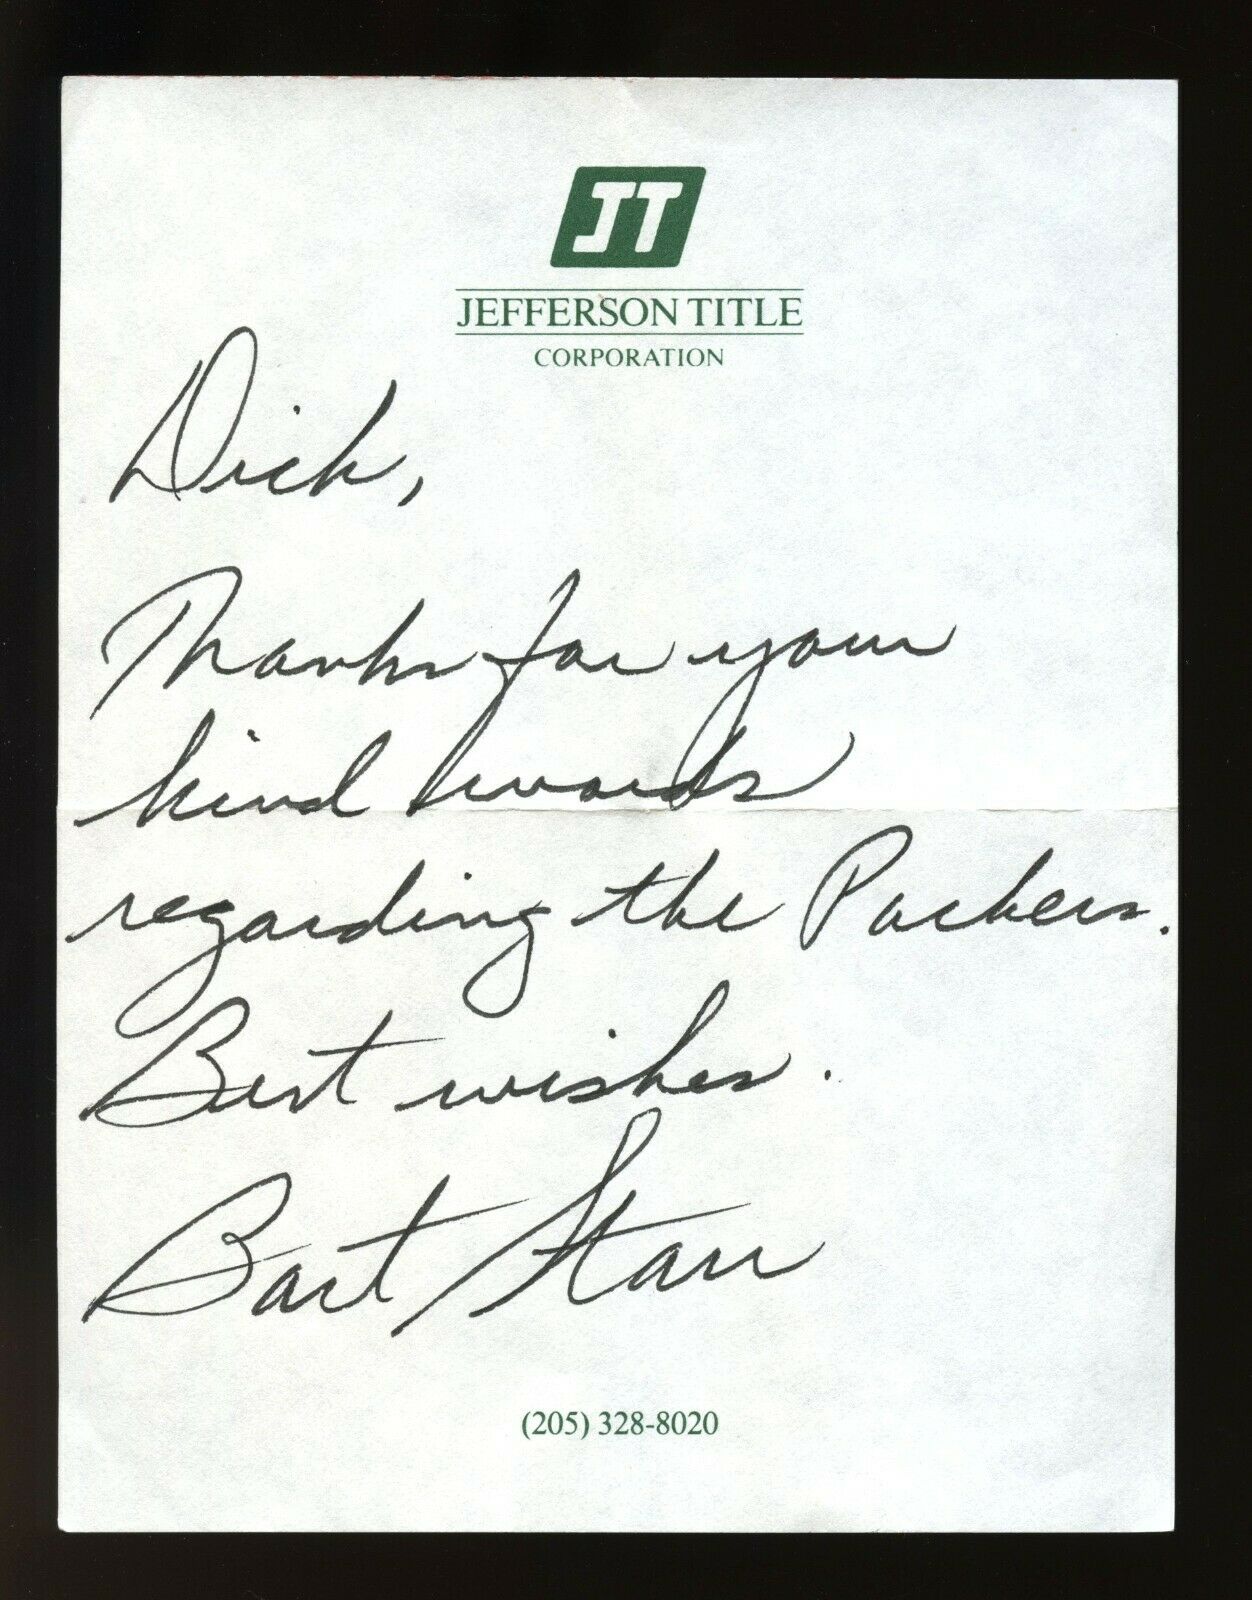 JT
JEFFERSON TITLE
CORPORATION
Dick,
Thanks for your
kind words
regarding the Packers.
Best wishes.
Bart Starr
(205) 328-8020